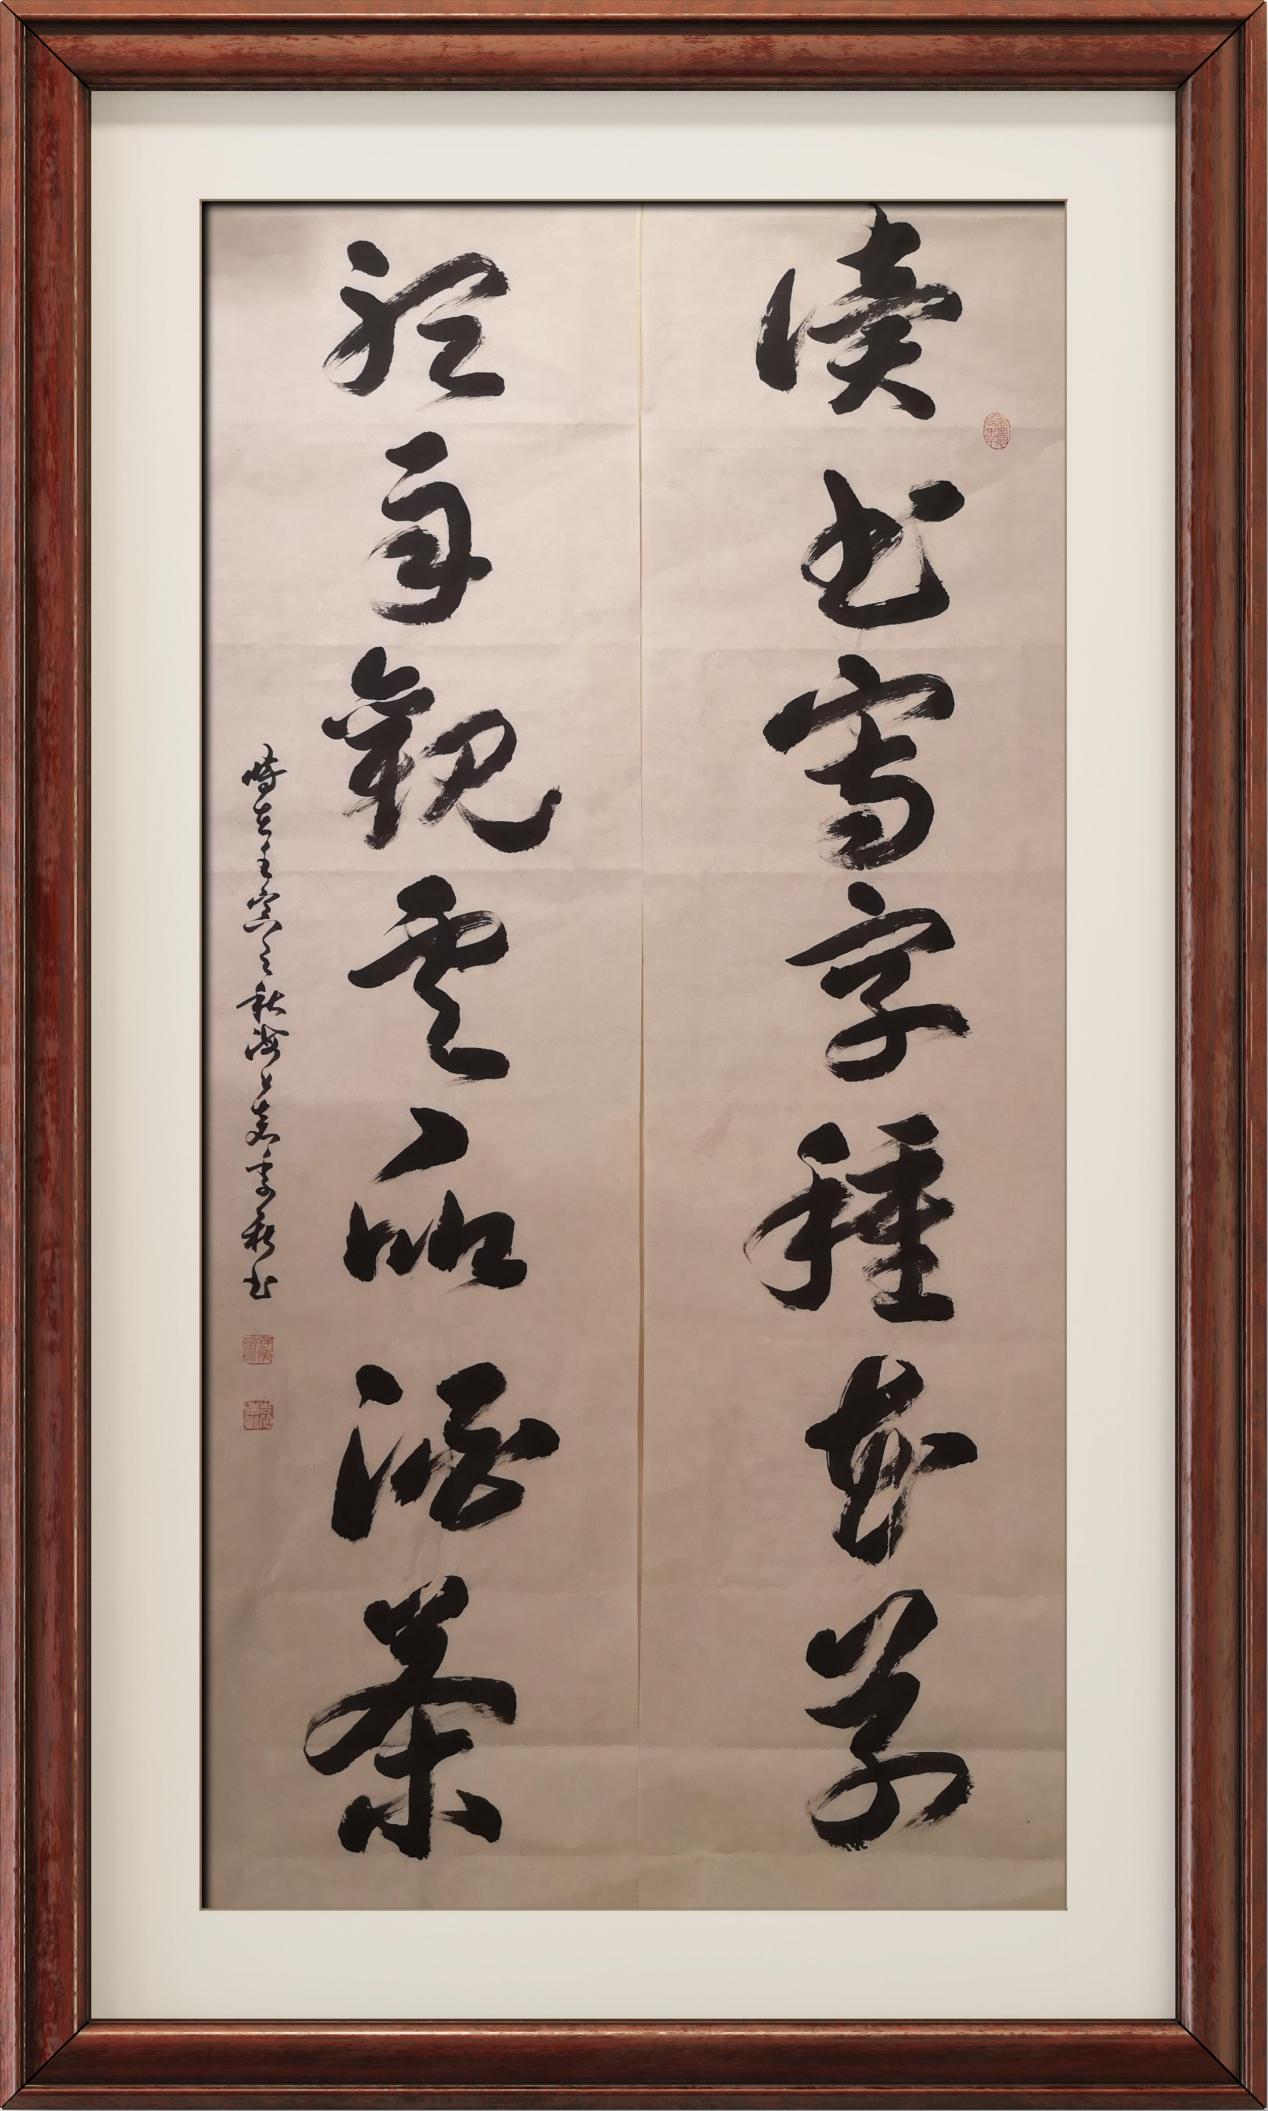 讀书寫字種花草
聽雨觀雲品酒茶
時在壬寅之秋海上季秋书